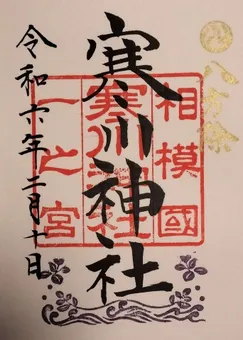 八方除
寒川神社
相模國
寒川神社
一之宮
令和六年二月十日